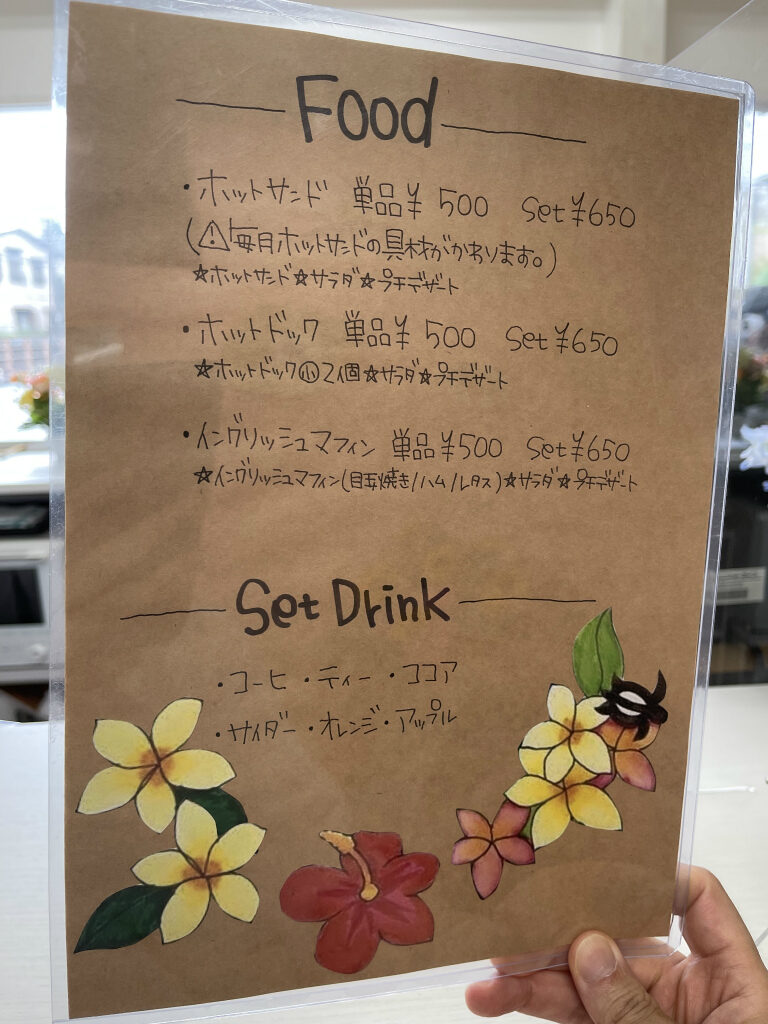 Food
・ホットサンド 単品¥500 Set¥650
(⚠毎月ホットサンドの具材がかわります。)
☆ホットサンド☆サラダ☆プチデザート
・ホットドック 単品¥500 Set¥650
☆ホットドック㊙小2個☆サラダ☆プチデザート
・イングリッシュマフィン 単品¥500 Set¥650
☆イングリッシュマフィン(目玉焼き/ハム/レタス)☆サラダ☆プチデザート
Set Drink
・コーヒ ・ティー ・ココア
・サイダー ・オレンジ ・アップル